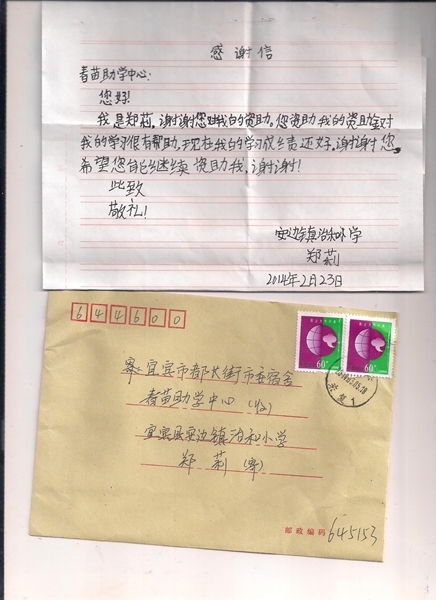 感谢信
春苗助学中心:
您好!
我是郑莉,谢谢您对我的资助,您资助我的资助金对
我的学习很有帮助,现在我的学习成绩还好,谢谢您,
希望您能继续资助我,谢谢!
此致
敬礼!
安边镇治和小学
郑莉
2014年2月23日
644600
60分
60分
寄: 宜宾市都长街市委宿舍
春苗助学中心 (收)
宜宾县安边镇治和小学
郑莉 (寄)
邮政编码 645153